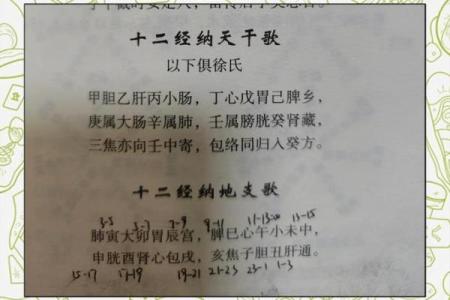 十二经纳天干歌
以下俱徐氏
甲胆乙肝丙小肠，丁心戊胃己脾乡，
庚属大肠辛属肺，壬属膀胱癸肾藏，
三焦亦向壬中寄，包络同归入癸方。
十二经纳地支歌
3-5 5-7 7-9 9-11 11-13:00 13-15
肺寅大卯胃辰宫，脾巳心午小未中，
申胱酉肾心包戌，亥焦子胆丑肝通。
15-17 17-19 19-21 21-23 23-1 1-3